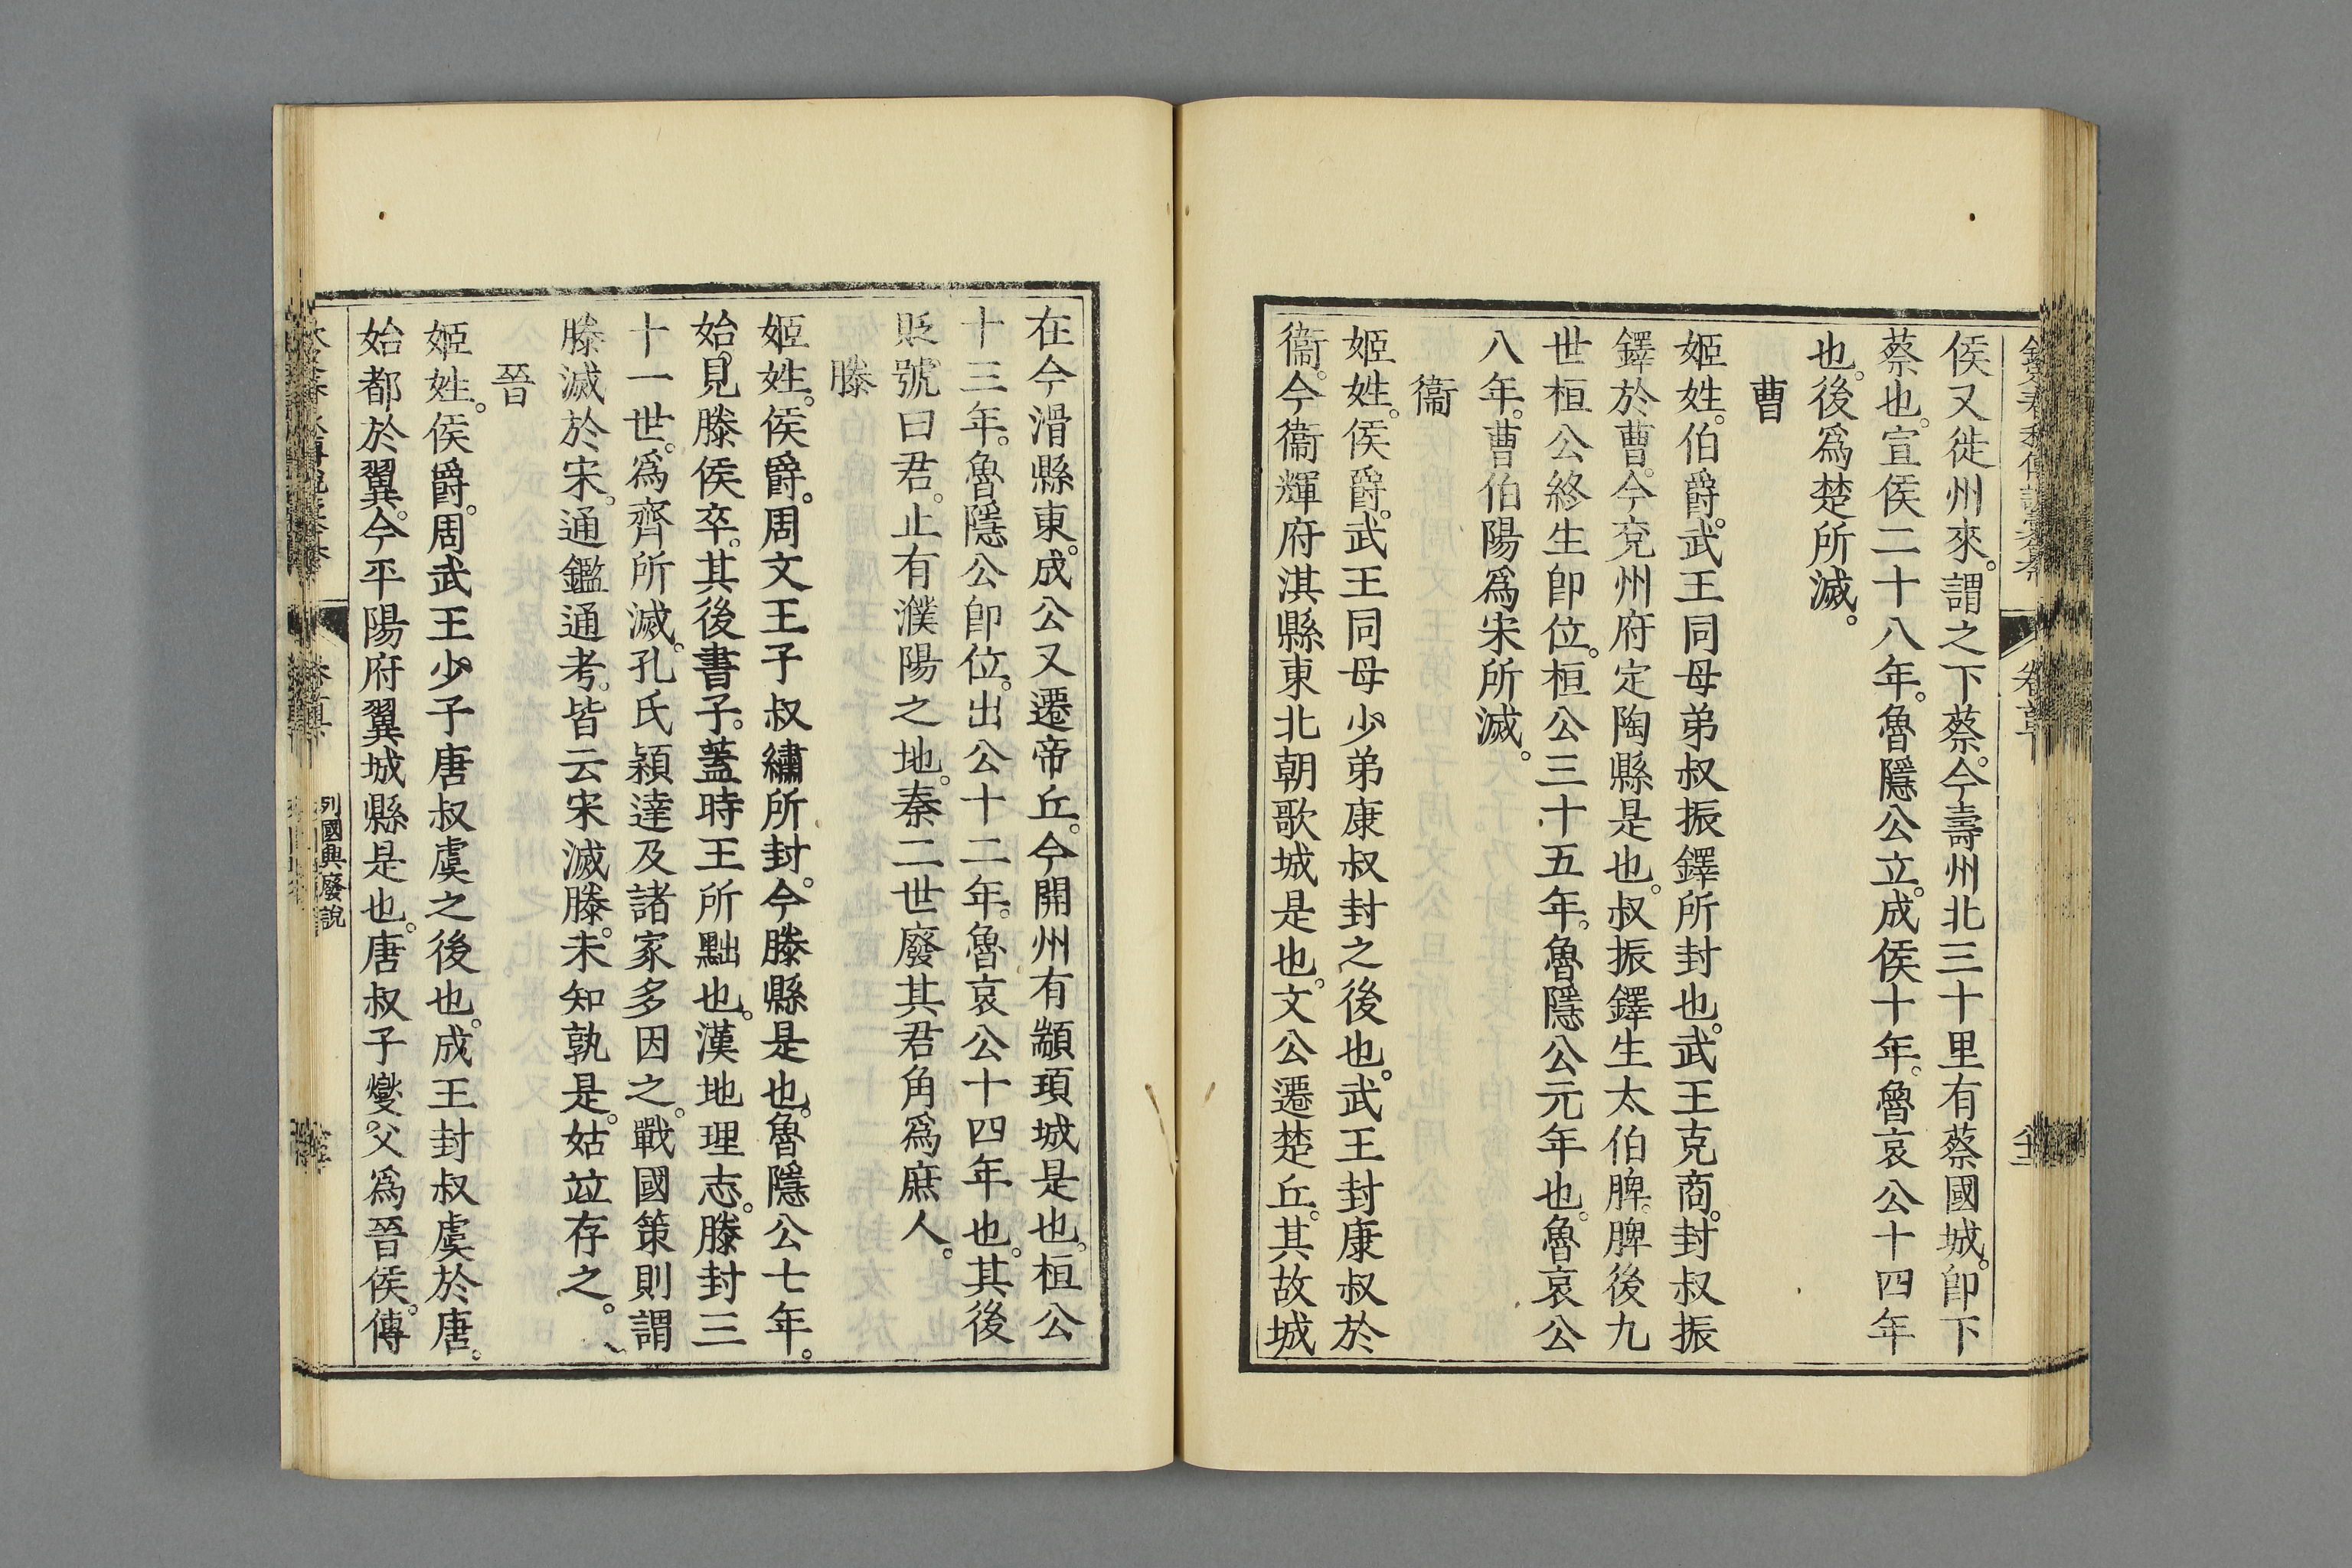 侯又徙州來。謂之下蔡。今壽州北三十里有蔡國城。卽下
蔡也。宣侯二十八年。魯隱公立。成侯十年。魯哀公十四年
也。後爲楚所滅。
曹
姬姓。伯爵。武王同母弟叔振鐸所封也。武王克商。封叔振
鐸於曹。今兗州府定陶縣是也。叔振鐸生太伯脾。脾後九
世桓公終生卽位。桓公三十五年。魯隱公元年也。魯哀公
八年。曹伯陽爲宋所滅。
衞
姬姓。侯爵。武王同母少弟康叔封之後也。武王封康叔於
衞。今衞輝府淇縣東北朝歌城是也。文公遷楚丘。其故城
在今滑縣東。成公又遷帝丘。今開州有顓頊城是也。桓公
十三年。魯隱公卽位。出公十二年。魯哀公十四年也。其後
貶號曰君。止有濮陽之地。秦二世廢其君角爲庶人。
滕
姬姓。侯爵。周文王子叔繡所封。今滕縣是也。魯隱公七年。
始見滕侯卒。其後書子。蓋時王所黜也。漢地理志。滕封三
十一世。爲齊所滅。孔氏穎達及諸家多因之。戰國策則謂
滕滅於宋。通鑑通考。皆云宋滅滕。未知孰是。姑竝存之。
晉
姬姓。侯爵。周武王少子唐叔虞之後也。成王封叔虞於唐。
始都於翼。今平陽府翼城縣是也。唐叔子燮。父爲晉侯。傳
列國興廢說